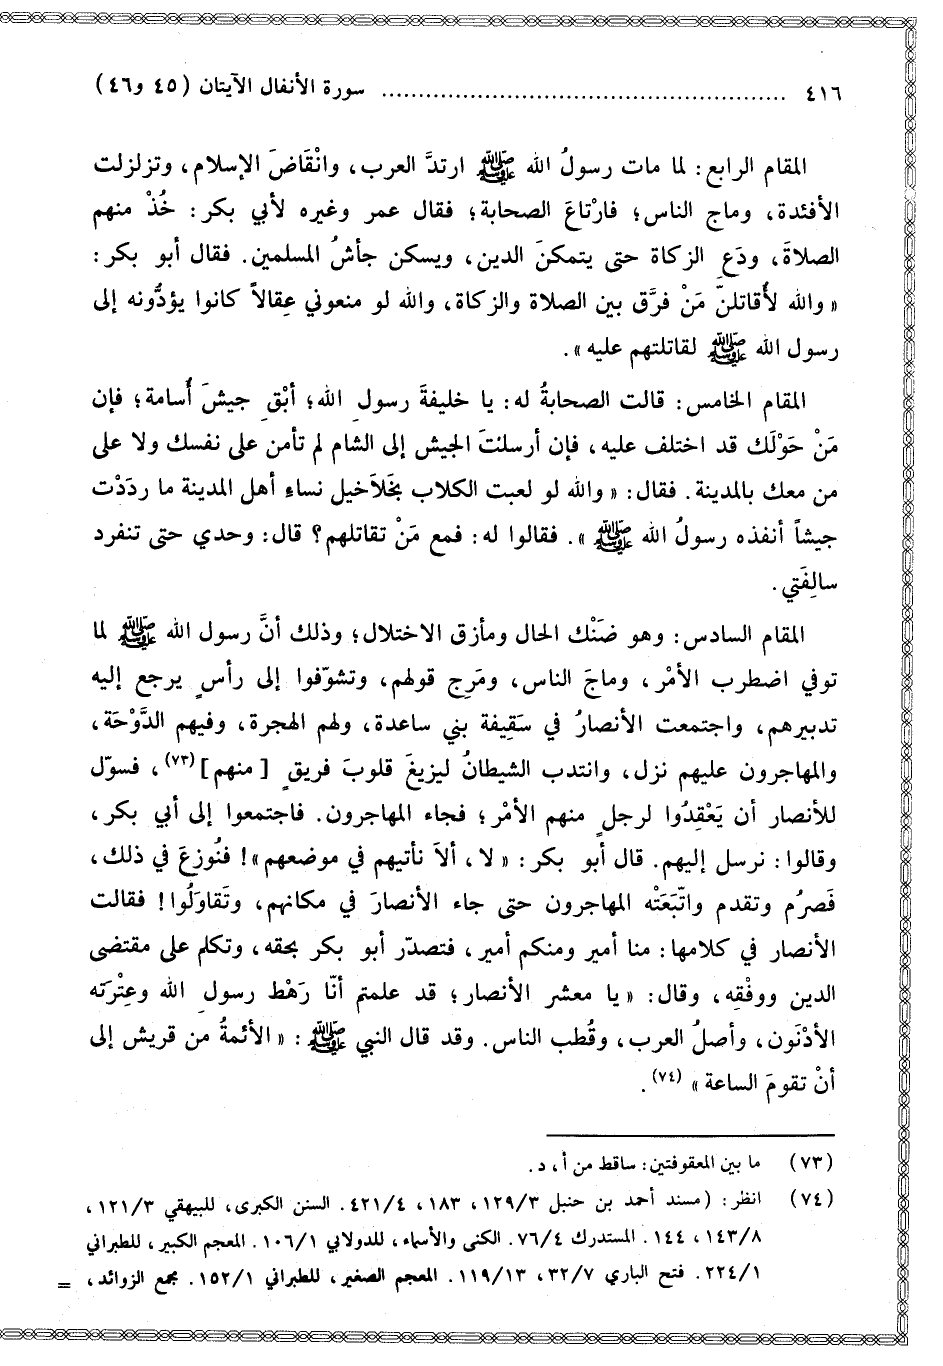 ٤١٦ ........................................................ سورة الأنفال الآيتان (٤٥ و٤٦)
المقام الرابع: لما مات رسولُ الله ﷺ ارتدَّ العرب، وانْقَاضَ الإسلام، وتزلزلت
الأفئدة، وماج الناس؛ فارْتاعَ الصحابة؛ فقال عمر وغيره لأبي بكر: خُذْ منهم
الصلاةَ، ودَعِ الزكاة حتى يتمكنَ الدين، ويسكن جأشُ المسلمين. فقال أبو بكر:
«والله لأُقاتلنّ مَنْ فرَّق بين الصلاة والزكاة، والله لو منعوني عِقالاً كانوا يؤدُّونه إلى
رسول الله ﷺ لقاتلتهم عليه».
المقام الخامس: قالت الصحابةُ له: يا خليفةَ رسول الله؛ أبْقِ جيشَ أُسامة؛ فإن
مَنْ حَوْلَك قد اختلف عليه، فإن أرسلتَ الجيش إلى الشام لم تأمن على نفسك ولا على
من معك بالمدينة. فقال: «والله لو لعبت الكلاب بخَلاَخيل نساءِ أهل المدينة ما ردَدْت
جيشاً أنفذه رسولُ الله ﷺ». فقالوا له: فمع مَنْ تقاتلهم؟ قال: وحدي حتى تنفرد
سالِفَتي.
المقام السادس: وهو ضَنْك الحال ومأزق الاختلال؛ وذلك أنَّ رسول الله ﷺ لما
توفي اضطرب الأمْر، وماجَ الناس، ومَرِج قولهم، وتشوّفوا إلى رأسٍ يرجع إليه
تدبيرهم، واجتمعت الأنصارُ في سَقِيفة بني ساعدة، ولهم الهجرة، وفيهم الدَّوْحَة،
والمهاجرون عليهم نزل، وانتدب الشيطانُ ليزيغَ قلوبَ فريقٍ [منهم](٧٣)، فسوّل
للأنصار أن يَعْقِدُوا لرجلٍ منهم الأمْر؛ فجاء المهاجرون. فاجتمعوا إلى أبي بكر،
وقالوا: نرسل إليهم. قال أبو بكر: «لا، ألاَ نأتيهم في موضعهم»! فنُوزعَ في ذلك،
فَصرُم وتقدم واتّبَعَتْه المهاجرون حتى جاء الأنصارَ في مكانهم، وتَقاوَلُوا! فقالت
الأنصار في كلامها: منا أمير ومنكم أمير، فتصدّر أبو بكر بحقه، وتكلم على مقتضى
الدين ووفْقِه، وقال: «يا معشر الأنصار؛ قد علمتم أنّا رَهْط رسولِ الله وعِتْرته
الأدْنَون، وأصلُ العرب، وقُطب الناس. وقد قال النبي ﷺ: «الأئمةُ من قريش إلى
أنْ تقومَ الساعة»(٧٤).
(٧٣) ما بين المعقوفتين: ساقط من أ، د.
(٧٤) انظر: (مسند أحمد بن حنبل ١٢٩/٣، ١٨٣، ٤٢١/٤. السنن الكبرى، للبيهقي ١٢١/٣،
١٤٣/٨، ١٤٤. المستدرك ٧٦/٤. الكنى والأسماء، للدولابي ١٠٦/١. المعجم الكبير، للطبراني
٢٢٤/١. فتح الباري ٣٢/٧، ١١٩/١٣. المعجم الصغير، للطبراني ١٥٢/١. مجمع الزوائد، =